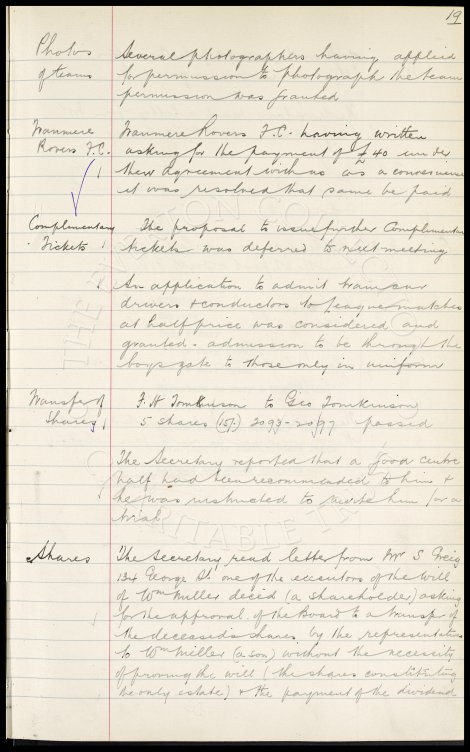 19
Photos
of teams
Several photographers having applied
for permission to photograph the team
permission was granted
Tranmere
Rovers F.C.
Tranmere Rovers F.C. having written
asking for the payment of £40 under
their agreement with us as a consequence
it was resolved that same be paid
Complimentary
Tickets
The proposal to issue further Complimentary
tickets was deferred to next meeting
An application to admit tram car
drivers & conductors to League matches
at half price was considered and
granted - admission to be through the
boys gate to those only in uniform
Transfer of
Shares
F. H Tomkinson to Geo Tomkinson
5 shares (15/-) 2093-2097 passed
The Secretary reported that a good centre
half had been recommended to him &
he was instructed to invite him for a
trial
Shares
The Secretary read letter from Mr S Greig
134 George St. one of the executors of the will
of Wm Miller decd (a shareholder) asking
for the approval of the Board to a transfer of
the deceaseds shares by the representatives
to Wm Miller (a son) without the necessity
of proving the will (the shares constituting
the only estate) & the payment of the dividend
THE EVERTON COLLECTION
CHARITABLE TRUST